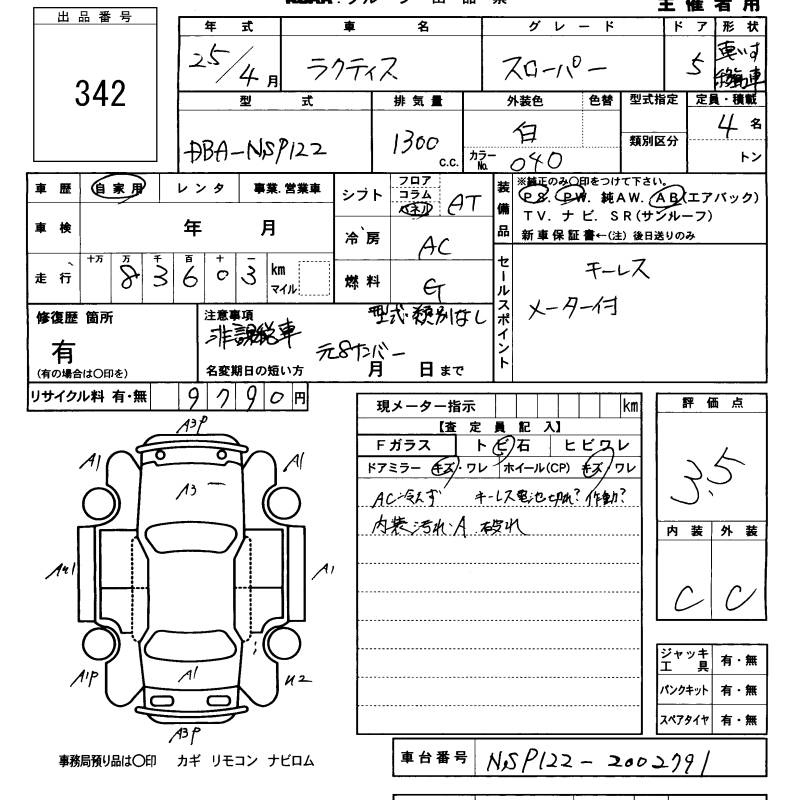 主催者用
出品番号
342
年式 車名 グレード ドア 形状
25/4月 ラクティス スローパー 5 車いす移動車
型式 排気量 外装色 色替 型式指定 定員・積載
DBA-NSP122 1300 c.c. 白 類別区分 4名
カラーNo. 040 トン
車歴 自家用 レンタ 事業.営業車 シフト フロア コラム パネル AT
装備品 ※純正のみ○印をつけて下さい。
PS. PW. 純AW. AB(エアバック)
TV. ナビ. SR(サンルーフ)
新車保証書←(注) 後日送りのみ
車検 年 月 冷房 AC
走行 十万 万 千 百 十 一
83603 km マイル 燃料 G
セールスポイント
キーレス
メーター付
修復歴 箇所
有
(有の場合は○印を)
注意事項 型式・類別なし
非課税車
元8ナンバー
名変期日の短い方 月 日まで
リサイクル料 有・無 9790円
現メーター指示 km
【査定員記入】
Fガラス トビ石 ヒビワレ
ドアミラー キズ・ワレ ホイール(CP) キズ・ワレ
AC冷えず キーレス電池切れ?作動?
内装汚れ・A 破れ
評価点
3.5
内装 外装
C C
A3P
A1 A1
A3
A1
A1P A1 U2
A3P
ジャッキ工具 有・無
パンクキット 有・無
スペアタイヤ 有・無
事務局預り品は○印 カギ リモコン ナビロム
車台番号 NSP122-2002791